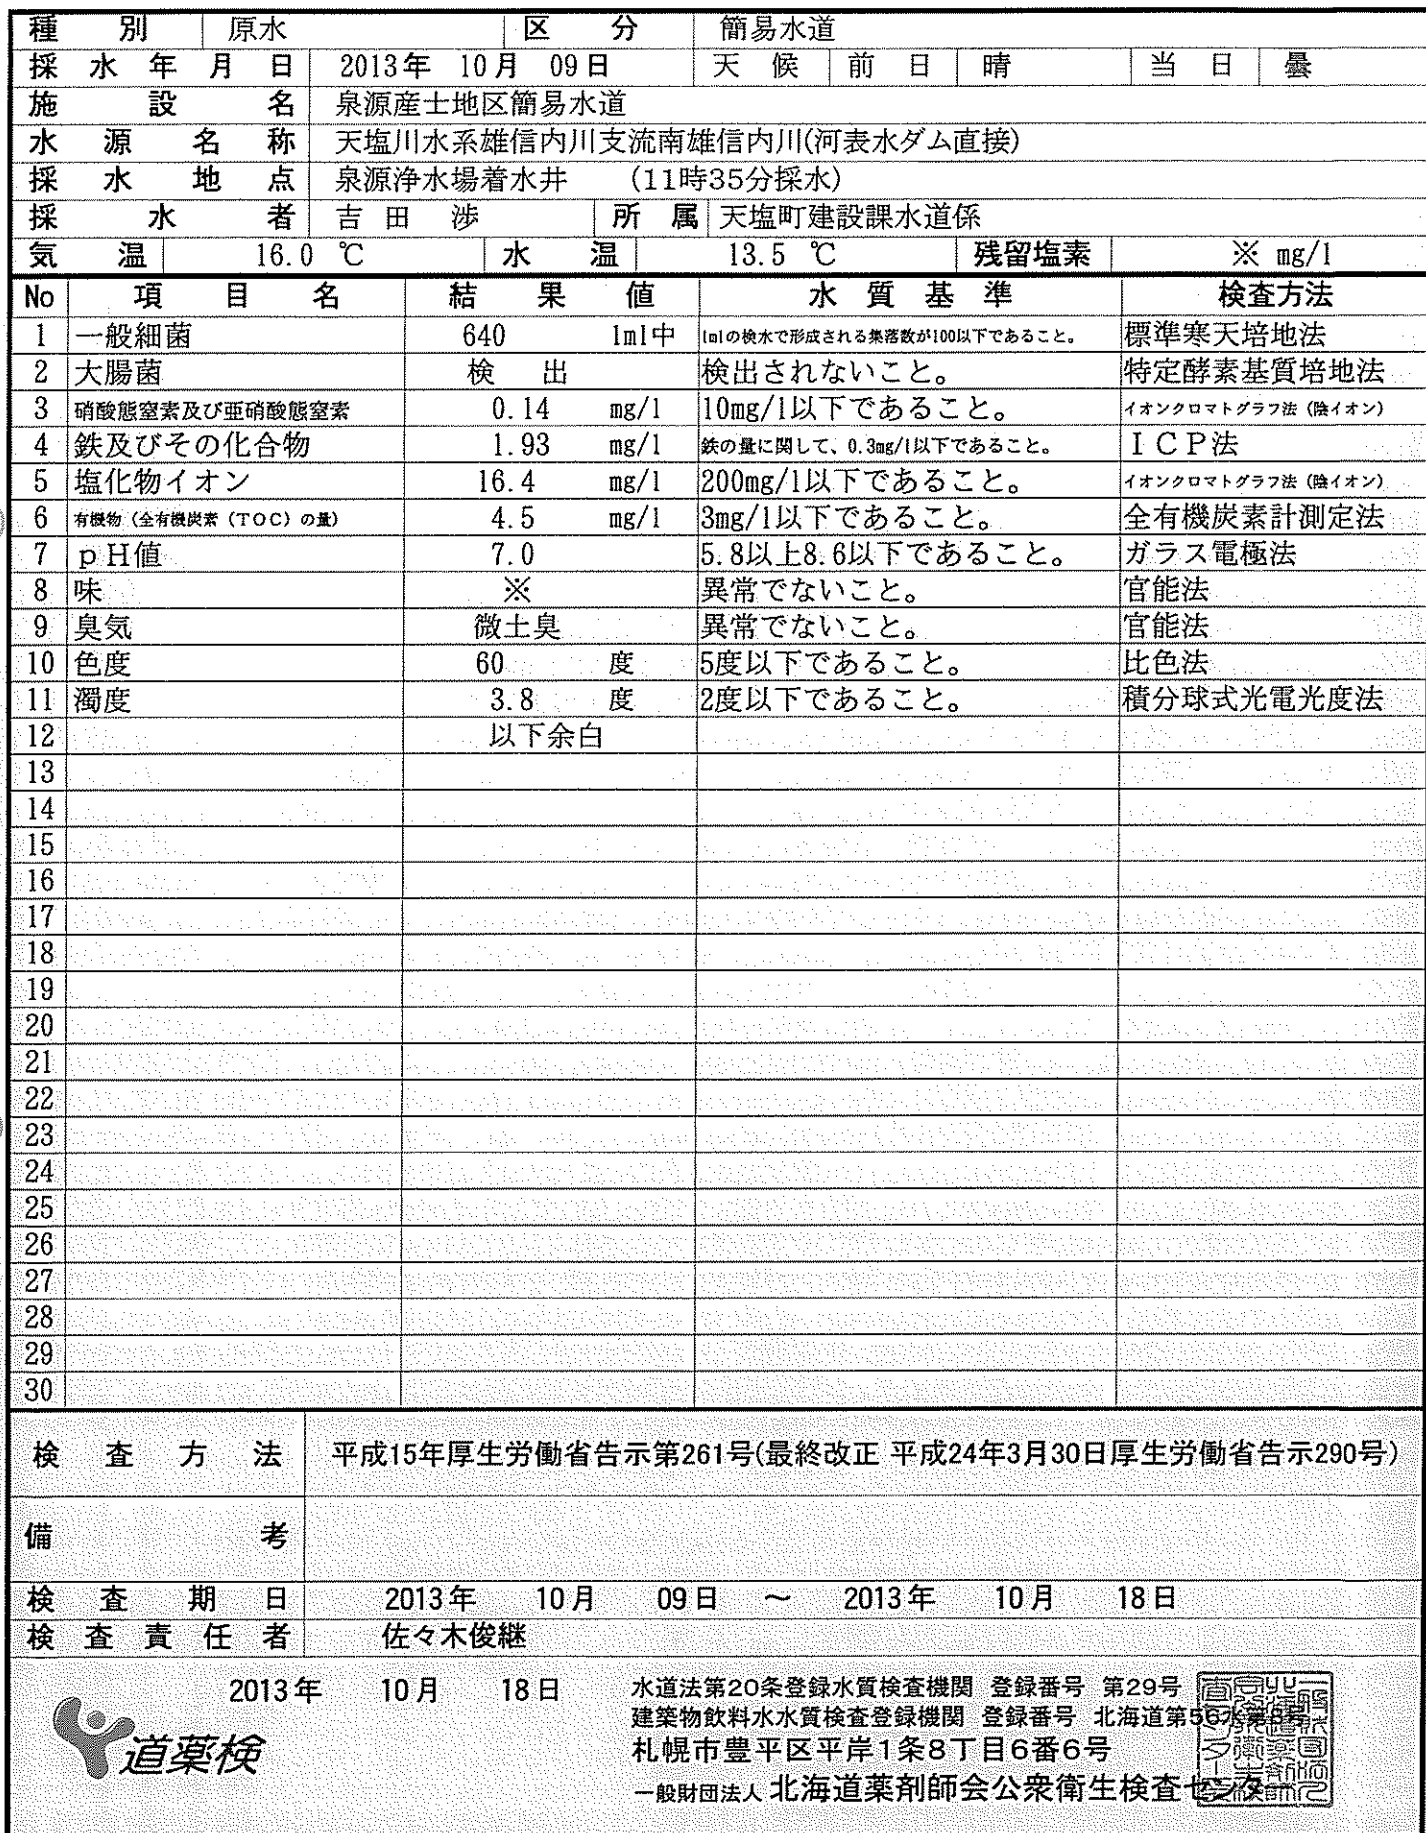 種別 原水 区分 簡易水道
採水年月日 2013年 10月 09日 天候 前日 晴 当日 曇
施設名 泉源産士地区簡易水道
水源名称 天塩川水系雄信内川支流南雄信内川(河表水ダム直接)
採水地点 泉源浄水場着水井 (11時35分採水)
採水者 吉田 渉 所属 天塩町建設課水道係
気温 16.0 ℃ 水温 13.5 ℃ 残留塩素 ※ mg/l
No 項目名 結果値 水質基準 検査方法
1 一般細菌 640 1ml中 1mlの検水で形成される集落数が100以下であること。 標準寒天培地法
2 大腸菌 検出 検出されないこと。 特定酵素基質培地法
3 硝酸態窒素及び亜硝酸態窒素 0.14 mg/l 10mg/l以下であること。 イオンクロマトグラフ法（陰イオン）
4 鉄及びその化合物 1.93 mg/l 鉄の量に関して、0.3mg/l以下であること。 ＩＣＰ法
5 塩化物イオン 16.4 mg/l 200mg/l以下であること。 イオンクロマトグラフ法（陰イオン）
6 有機物（全有機炭素（TOC）の量） 4.5 mg/l 3mg/l以下であること。 全有機炭素計測定法
7 ｐＨ値 7.0 5.8以上8.6以下であること。 ガラス電極法
8 味 ※ 異常でないこと。 官能法
9 臭気 微土臭 異常でないこと。 官能法
10 色度 60 度 5度以下であること。 比色法
11 濁度 3.8 度 2度以下であること。 積分球式光電光度法
12 以下余白
13
14
15
16
17
18
19
20
21
22
23
24
25
26
27
28
29
30
検査方法 平成15年厚生労働省告示第261号(最終改正 平成24年3月30日厚生労働省告示290号)
備考
検査期日 2013年 10月 09日 ～ 2013年 10月 18日
検査責任者 佐々木俊継
2013年 10月 18日
水道法第20条登録水質検査機関 登録番号 第29号
建築物飲料水水質検査登録機関 登録番号 北海道第56水第8号
道薬検
札幌市豊平区平岸1条8丁目6番6号
一般財団法人 北海道薬剤師会公衆衛生検査センター